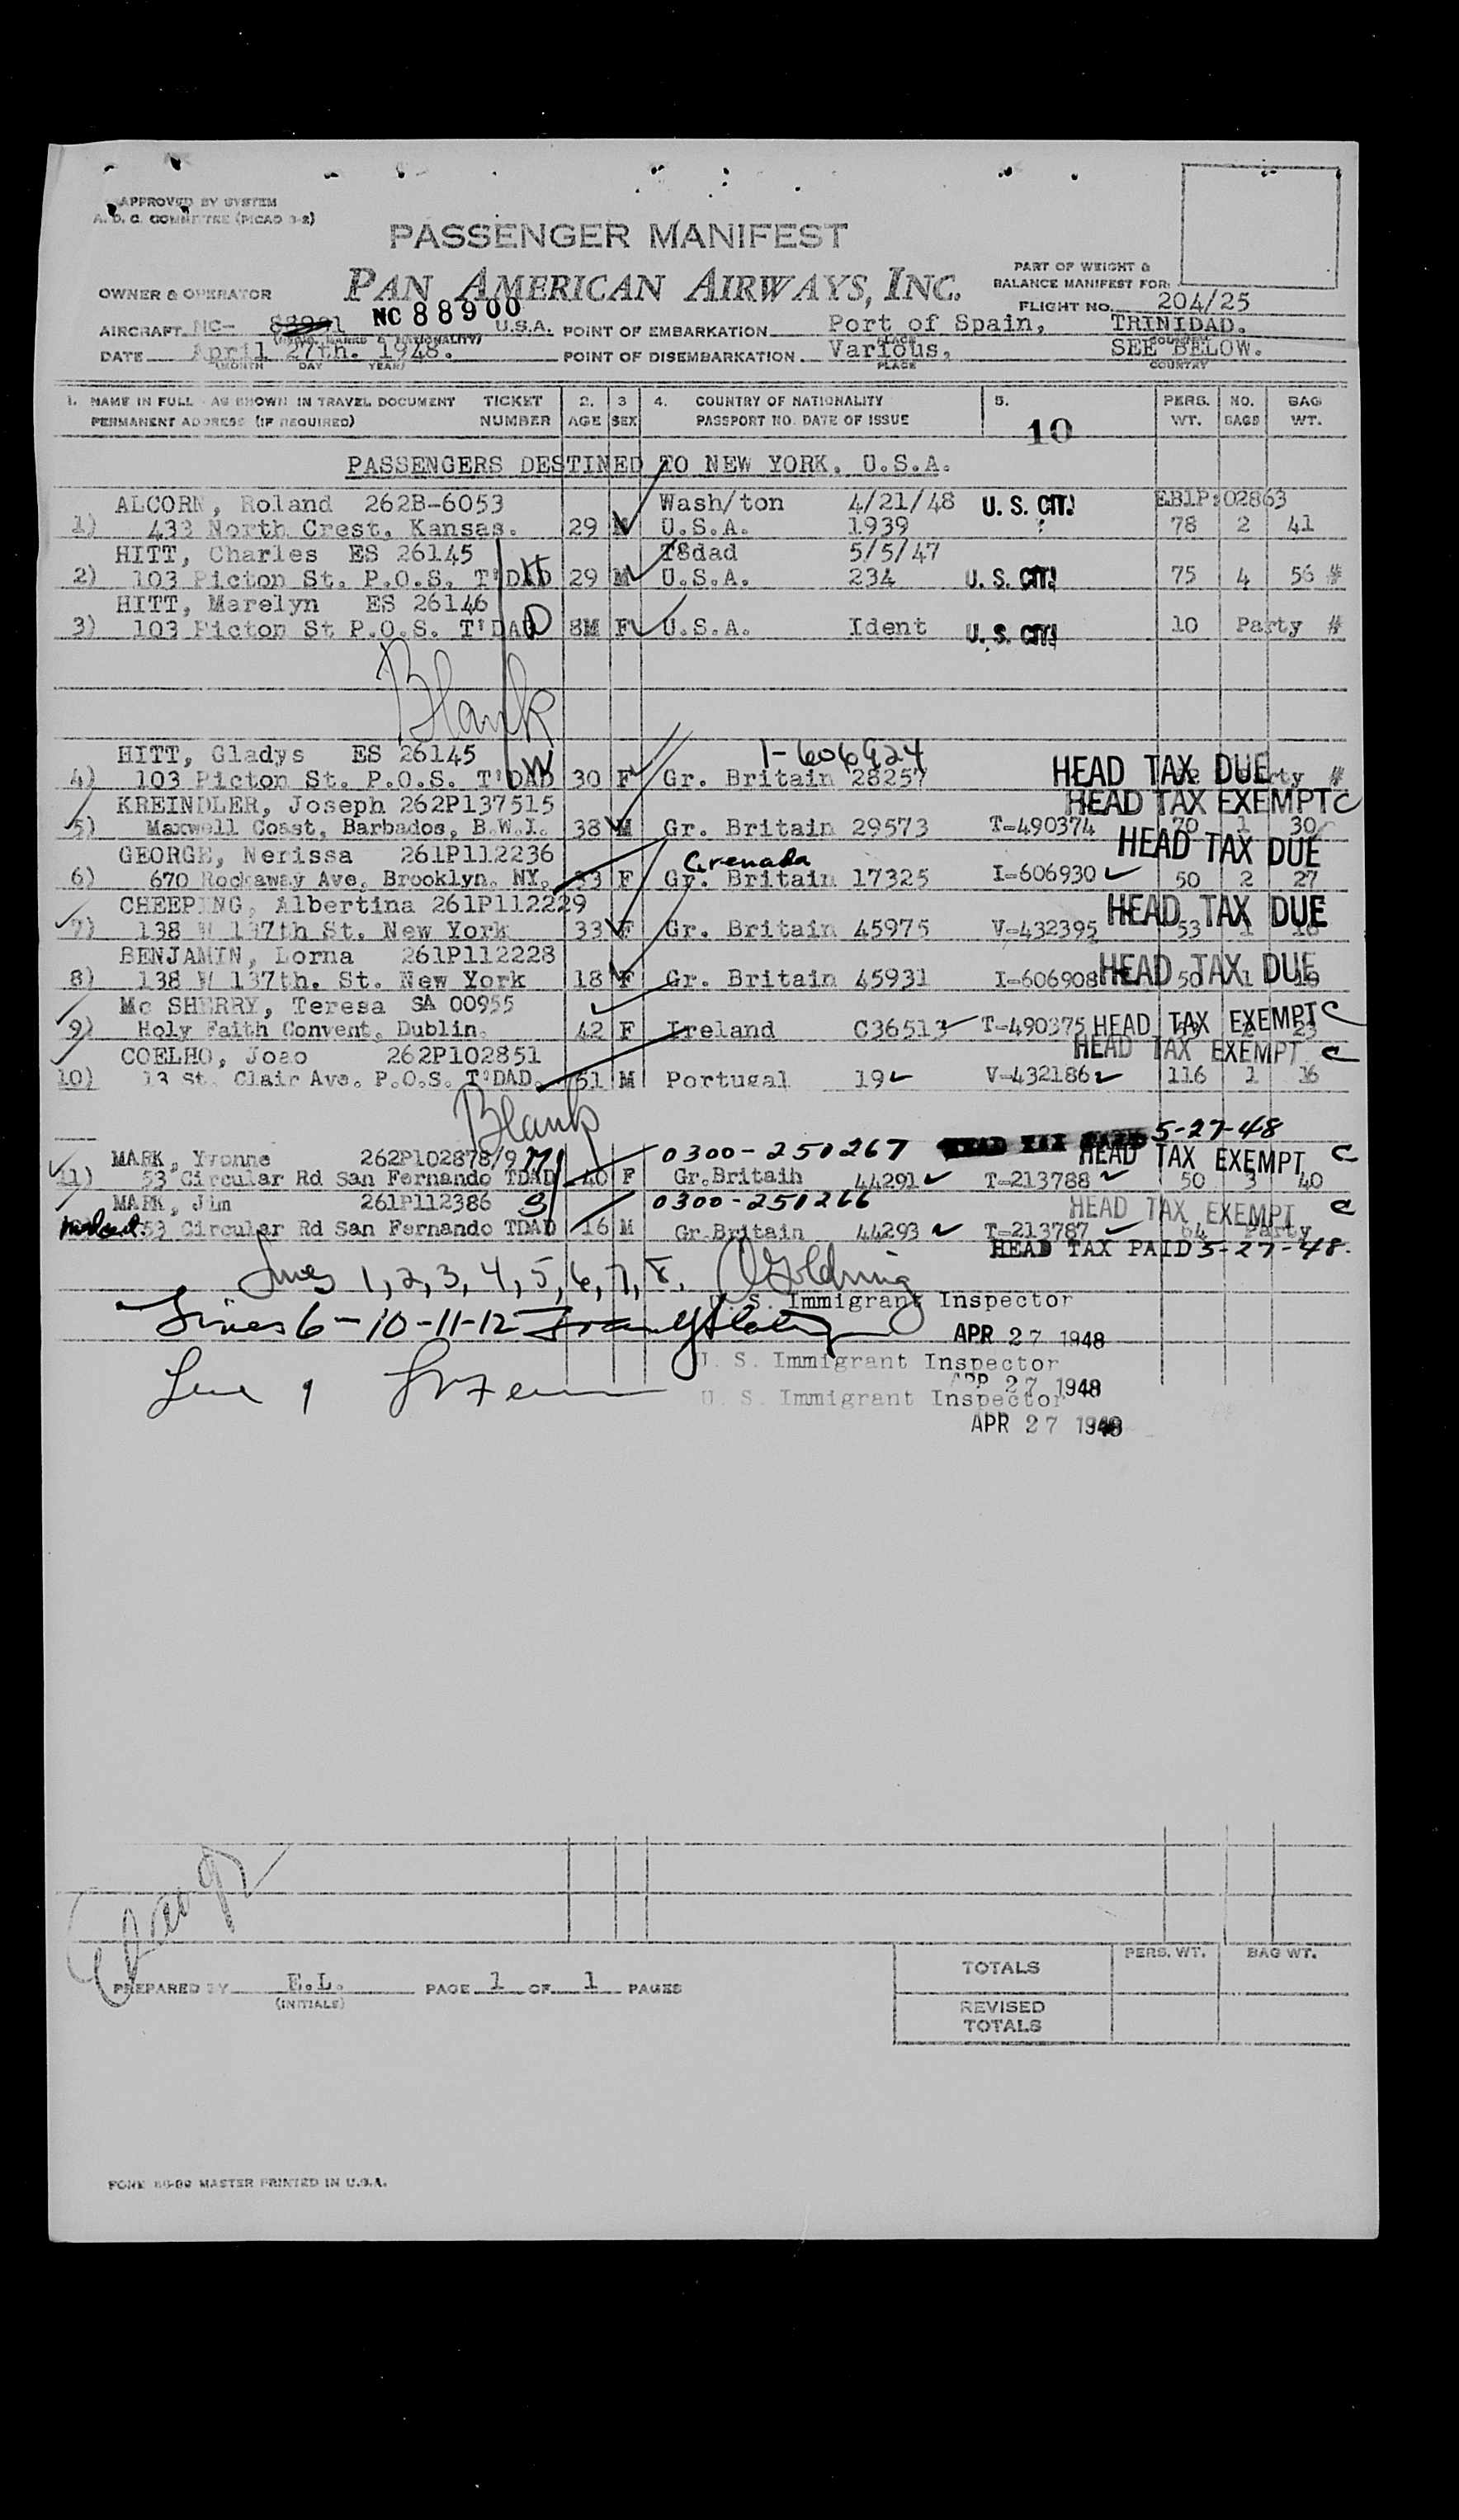 APPROVED BY SYSTEM
A. D. C. COMMITTEE (PICAO 3-2)
PASSENGER MANIFEST
PAN AMERICAN AIRWAYS, INC.
PART OF WEIGHT &
BALANCE MANIFEST FOR:
OWNER & OPERATOR
FLIGHT NO. 204/25
AIRCRAFT NC- NC 88900 U.S.A. POINT OF EMBARKATION Port of Spain, TRINIDAD.
DATE April 27th. 1948. POINT OF DISEMBARKATION Various, SEE BELOW.
(MONTH DAY YEAR) PLACE COUNTRY
1. NAME IN FULL - AS SHOWN IN TRAVEL DOCUMENT TICKET 2. 3 4. COUNTRY OF NATIONALITY 5. PERS. NO. BAG
PERMANENT ADDRESS (IF REQUIRED) NUMBER AGE SEX PASSPORT NO. DATE OF ISSUE 10 WT. BAGS WT.
PASSENGERS DESTINED TO NEW YORK, U.S.A.
ALCORN, Roland 262B-6053 Wash/ton 4/21/48 U. S. CIT. EB1P:02863
1) 433 North Crest, Kansas. 29 M U.S.A. 1939 78 2 41
HITT, Charles ES 26145 T8dad 5/5/47
2) 103 Picton St. P.O.S. T'DAD H 29 M U.S.A. 234 U. S. CIT. 75 4 56 #
HITT, Marelyn ES 26146
3) 103 Picton St P.O.S. T'DAD D 8M F U.S.A. Ident U. S. CIT. 10 Party #
Blank
HITT, Gladys ES 26145 1-606924
4) 103 Picton St. P.O.S. T'DAD W 30 F Gr. Britain 28257 HEAD TAX DUE Party #
KREINDLER, Joseph 262P137515 HEAD TAX EXEMPT C
5) Maxwell Coast, Barbados, B.W.I. 38 M Gr. Britain 29573 T-490374 70 1 30
GEORGE, Nerissa 261P112236 Grenada HEAD TAX DUE
6) 670 Rockaway Ave, Brooklyn, NY. 33 F Gr. Britain 17325 I-606930 50 2 27
CHEEPING, Albertina 261P112229 HEAD TAX DUE
7) 138 W 137th St. New York 33 F Gr. Britain 45975 V-432395 53 1
BENJAMIN, Lorna 261P112228
8) 138 W 137th. St. New York 18 F Gr. Britain 45931 I-606908 HEAD TAX DUE 50 1
Mc SHERRY, Teresa SA 00955
9) Holy Faith Convent, Dublin. 42 F Ireland C36513 T-490375 HEAD TAX EXEMPT C 23
COELHO, Joao 262P102851 HEAD TAX EXEMPT C
10) 13 St. Clair Ave. P.O.S. T'DAD. 51 M Portugal 19 V-432186 116 1 16
Blank
5-27-48
MARK, Yvonne 262P102878/9 M 0300-251267 HEAD TAX EXEMPT C
11) 53 Circular Rd San Fernando TDAD 40 F Gr.Britain 44291 T-213788 50 3 40
MARK, Jim 261P112386 S 0300-251266 HEAD TAX EXEMPT C
53 Circular Rd San Fernando TDAD 16 M Gr.Britain 44293 T-213787 64 Party
HEAD TAX PAID 5-27-48.
Lines 1, 2, 3, 4, 5, 6, 7, 8.
U. S. Immigrant Inspector
Lines 6-10-11-12
APR 27 1948
U. S. Immigrant Inspector
APR 27 1948
Line 9
U. S. Immigrant Inspector
APR 27 1948
TOTALS PERS. WT. BAG WT.
PREPARED BY E.L. PAGE 1 OF 1 PAGES
(INITIALS)
REVISED
TOTALS
MASTER PRINTED IN U.S.A.